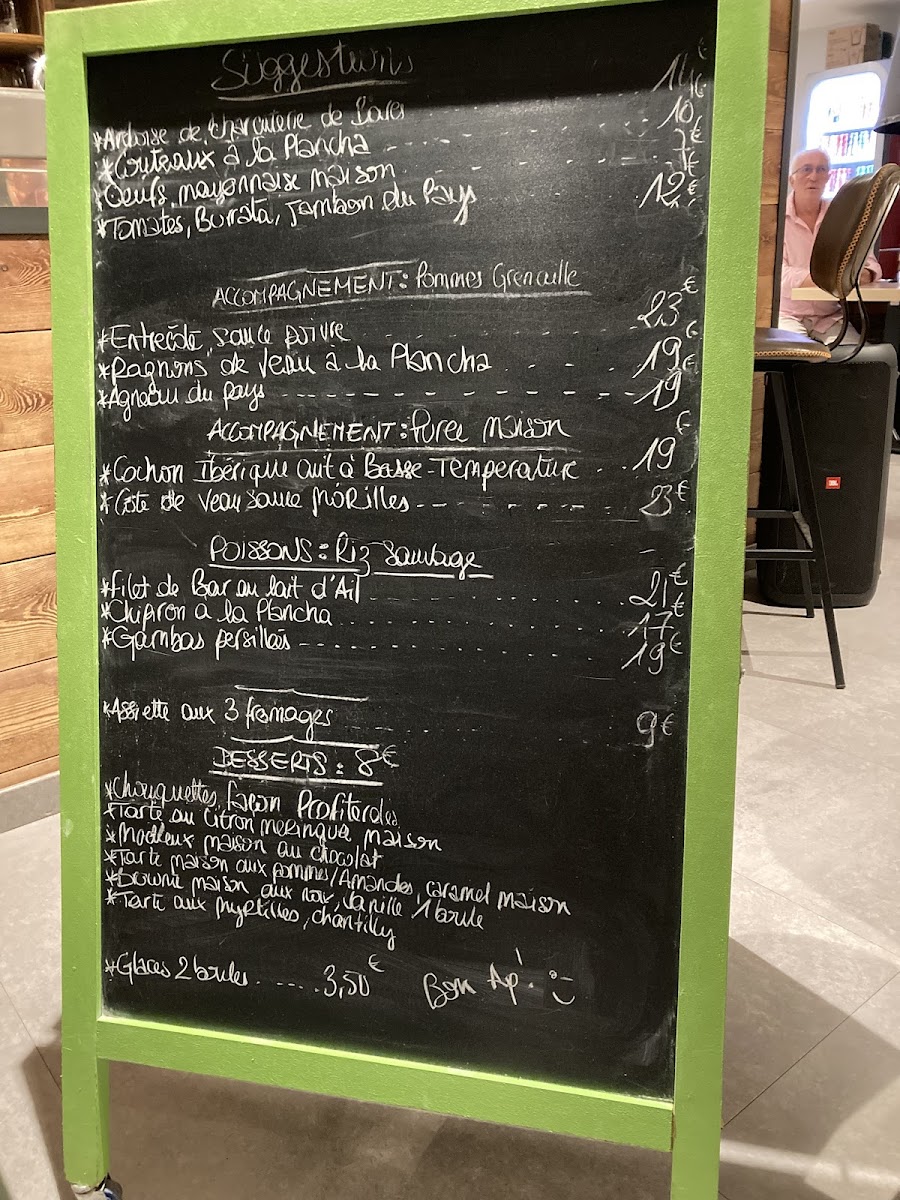 Suggestions
*Ardoise de charcuterie de Pays - - - - 14€
*Couteaux à la Plancha - - - - - 10,€
*Oeufs, mayonnaise maison - - - - - 7€
*Tomates, Burrata, Jambon du Pays . 12,€
ACCOMPAGNEMENT: Pommes Grenaille
*Entrecôte, sauce poivre 23€
*Rognons de Veau à la Plancha . . - - . 19€
*Agneau du pays - - - - - - - - - - - - 19
ACCOMPAGNEMENT: Purée maison
*Cochon Ibérique cuit à Basse-Temperature . . 19€
*Côte de veau sauce MORILLES - - - - - - - 23€
POISSONS: Riz Sauvage
*Filet de Bar au lait d'Ail . . . . . . . . 21€
*Chipiron a la Plancha . . . . . . . . 17€
*Gambas persillées - - - - . . . . . 19€
*Assiette aux 3 fromages . . . . . . 9€
DESSERTS: 8€
*Chouquettes, façon Profiteroles
*Tarte au citron meringué maison
*Moelleux maison au chocolat
*Tarte maison aux pommes/Amandes, caramel maison
*Brownie maison aux noix, vanille 1 boule
*Tarte aux myrtilles, chantilly
*Glaces 2 boules . . . . . 3,50€
Bon Ap'. :)
JBL